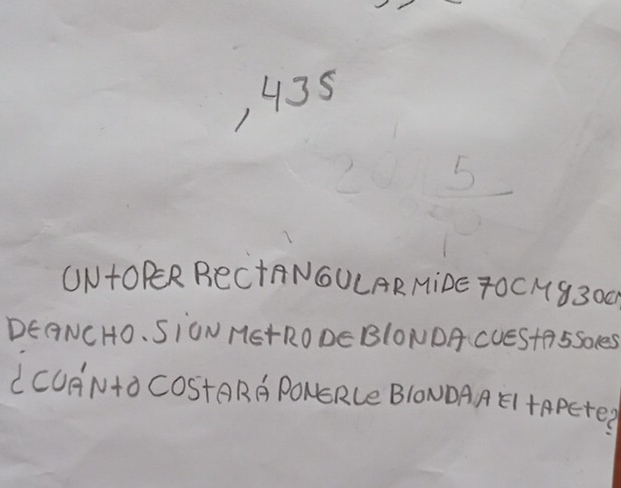 ,435
20 5
UN tOPER RECtANGULAR MiDE 70CM y 30cm
DE ANCHO. Si UN MEtRO DE BlONDA CUEStA 5 Soles
¿CUÁNtO COStARÁ PONERLe BlONDA A El tAPEte?